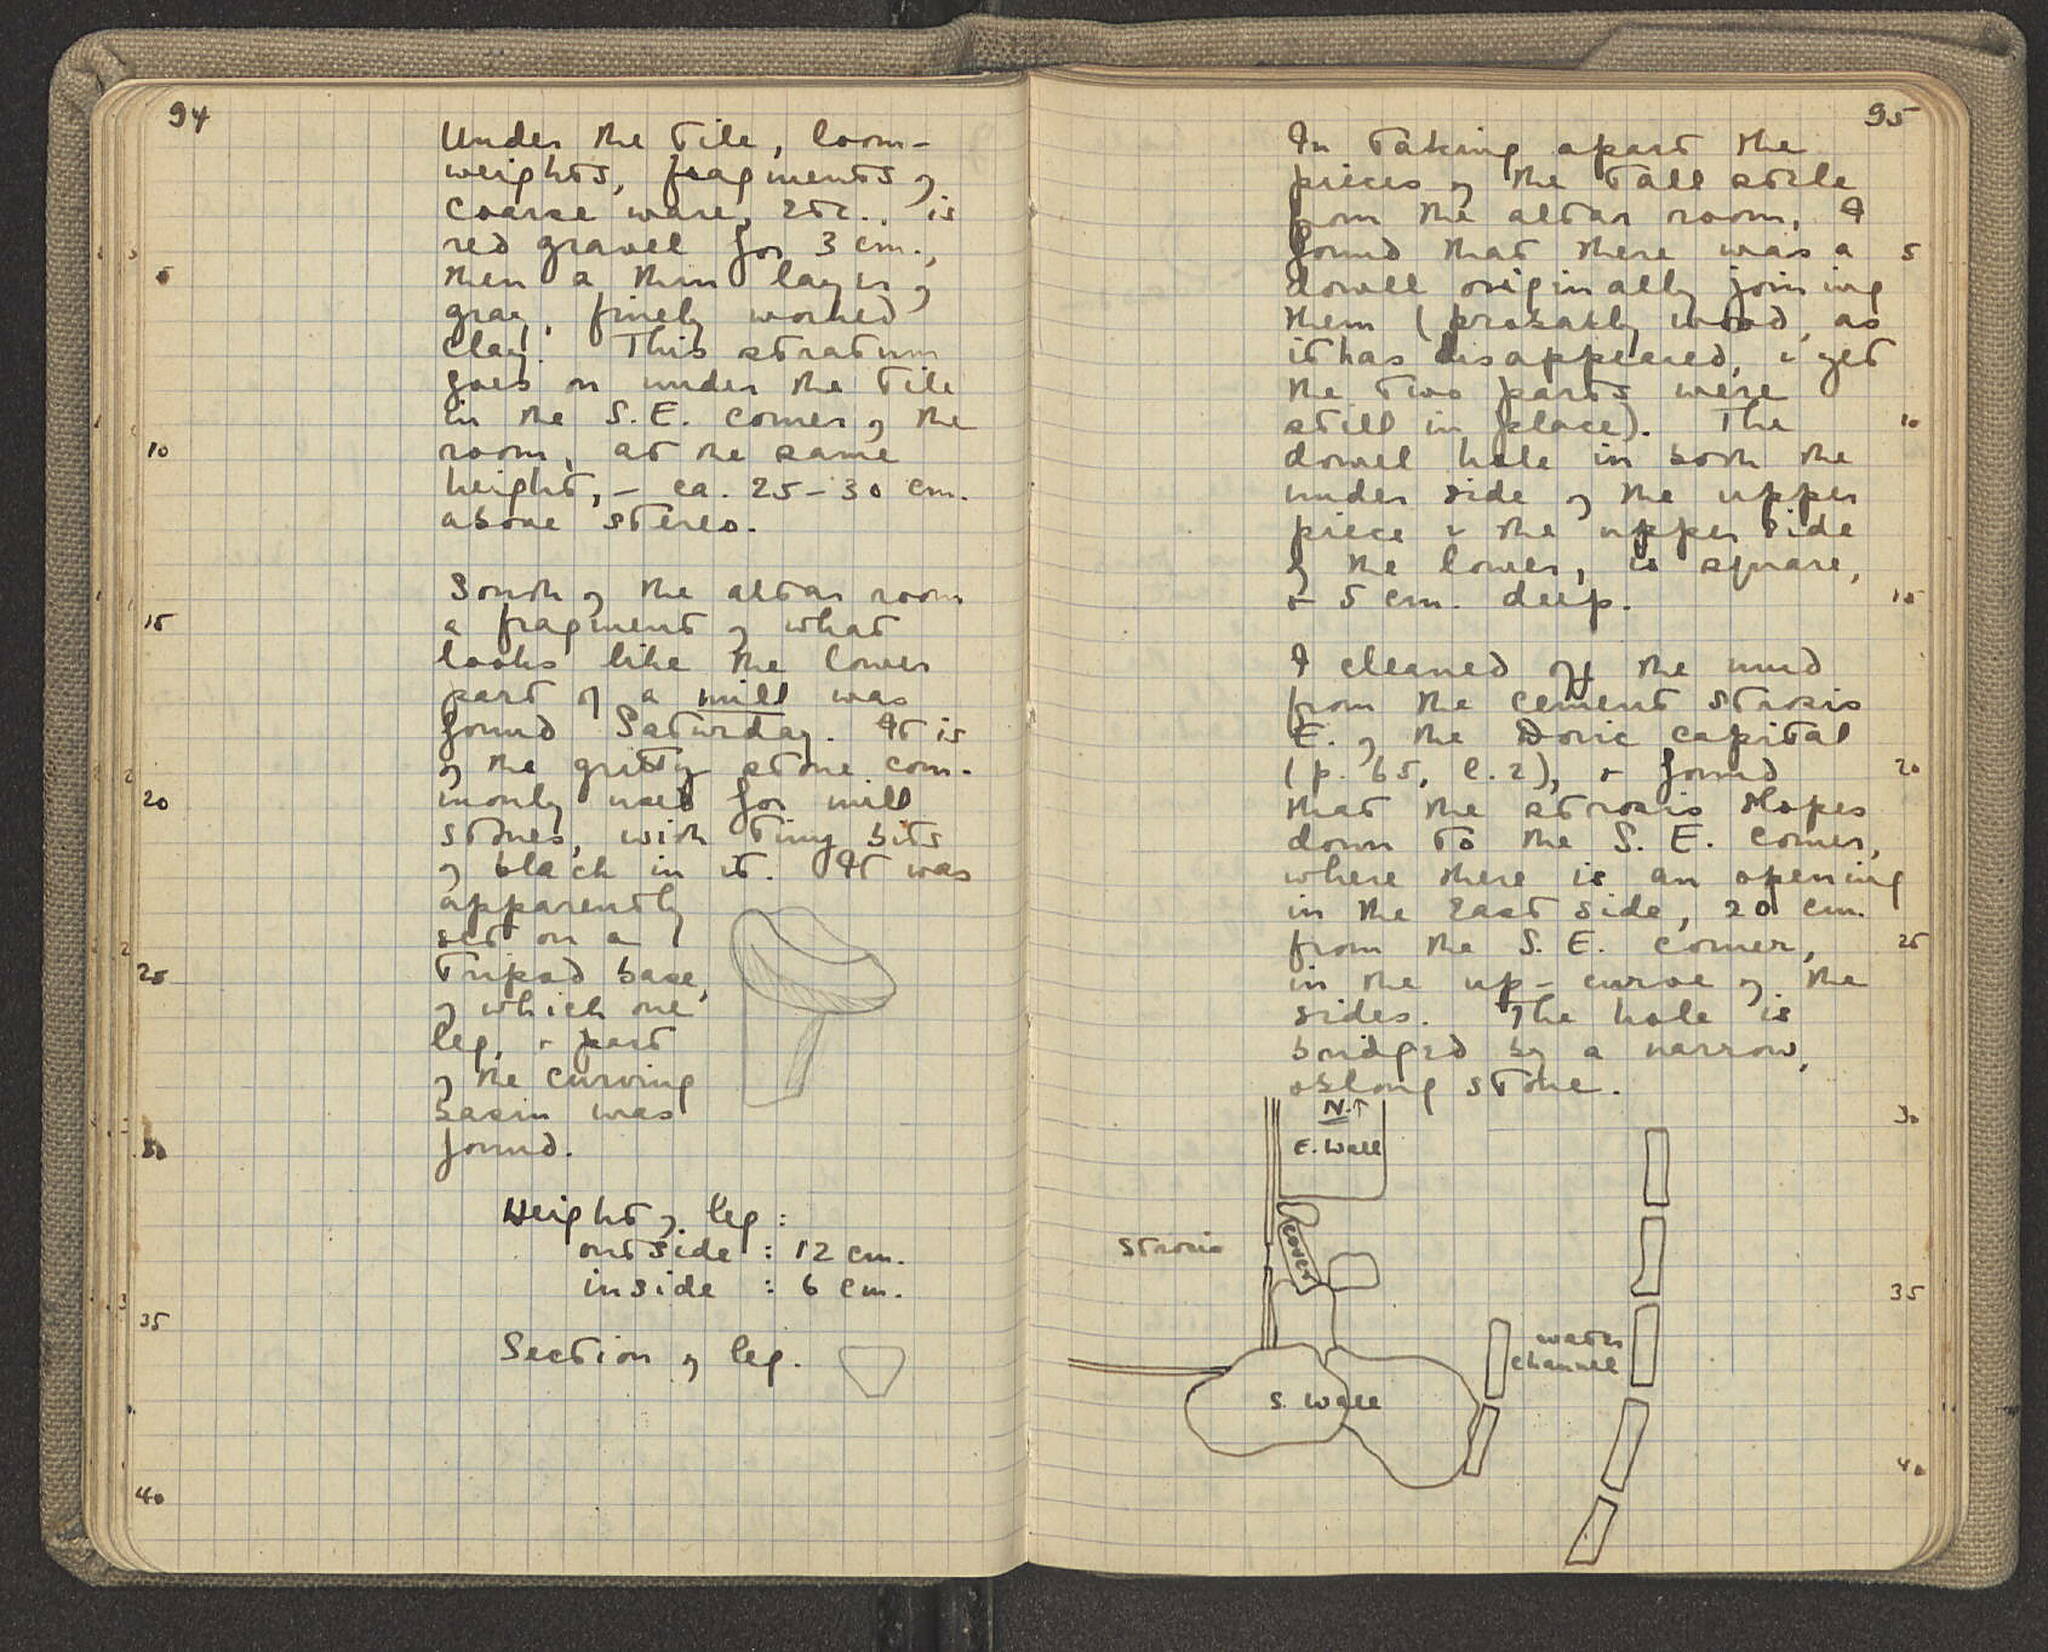 94
Under the tile, loom-
weights, fragments of
coarse ware, etc., is
red gravel for 3 cm.,
5
then a thin layer of
gray, finely worked
clay. This stratum
goes on under the tile
in the S.E. corner of the
10
room, at the same
height, - ca. 25-30 cm.
above stereo.
South of the altar room
15
a fragment of what
looks like the lower
part of a mill was
found Saturday. It is
of the gritty stone com-
20
monly used for mill
stones, with tiny bits
of black in it. It was
apparently
set on a
25
tripod base,
of which one
leg, & part
of the curving
basin was
30
found.
Height of leg:
outside : 12 cm.
inside : 6 cm.
35
Section of leg.
40
95
In taking apart the
pieces of the tall stele
from the altar room, I
found that there was a
5
dowell originally joining
them (probably wood, as
it has disappeared, & yet
the two parts were
still in place). The
10
dowel hole in both the
under side of the upper
piece & the upper side
of the lower, is square,
& 5 cm. deep.
15
I cleaned off the mud
from the cement strosis
E. of the Doric capital
(p. 65, l. 2), & found
20
that the strosis slopes
down to the S. E. corner,
where there is an opening
in the East side, 20 cm.
from the S. E. corner,
25
in the up-curve of the
sides. The hole is
bridged by a narrow,
oblong stone.
N.↑
30
E. Wall
cover
Strosis
35
water
channel
S. Wall
40